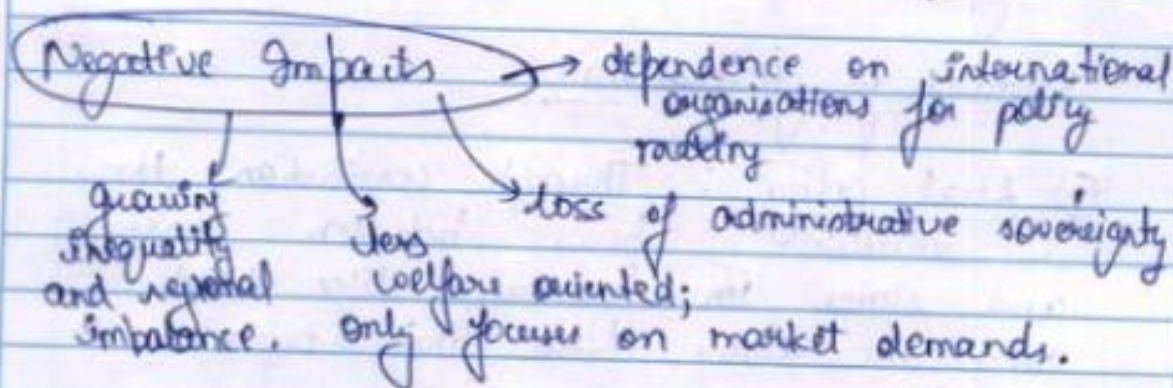 Negative Impacts → dependence on international
organisations for policy
making
growing
inequality
and regional
imbalance.
less
welfare oriented;
only focuses on market demands.
loss of administrative sovereignty